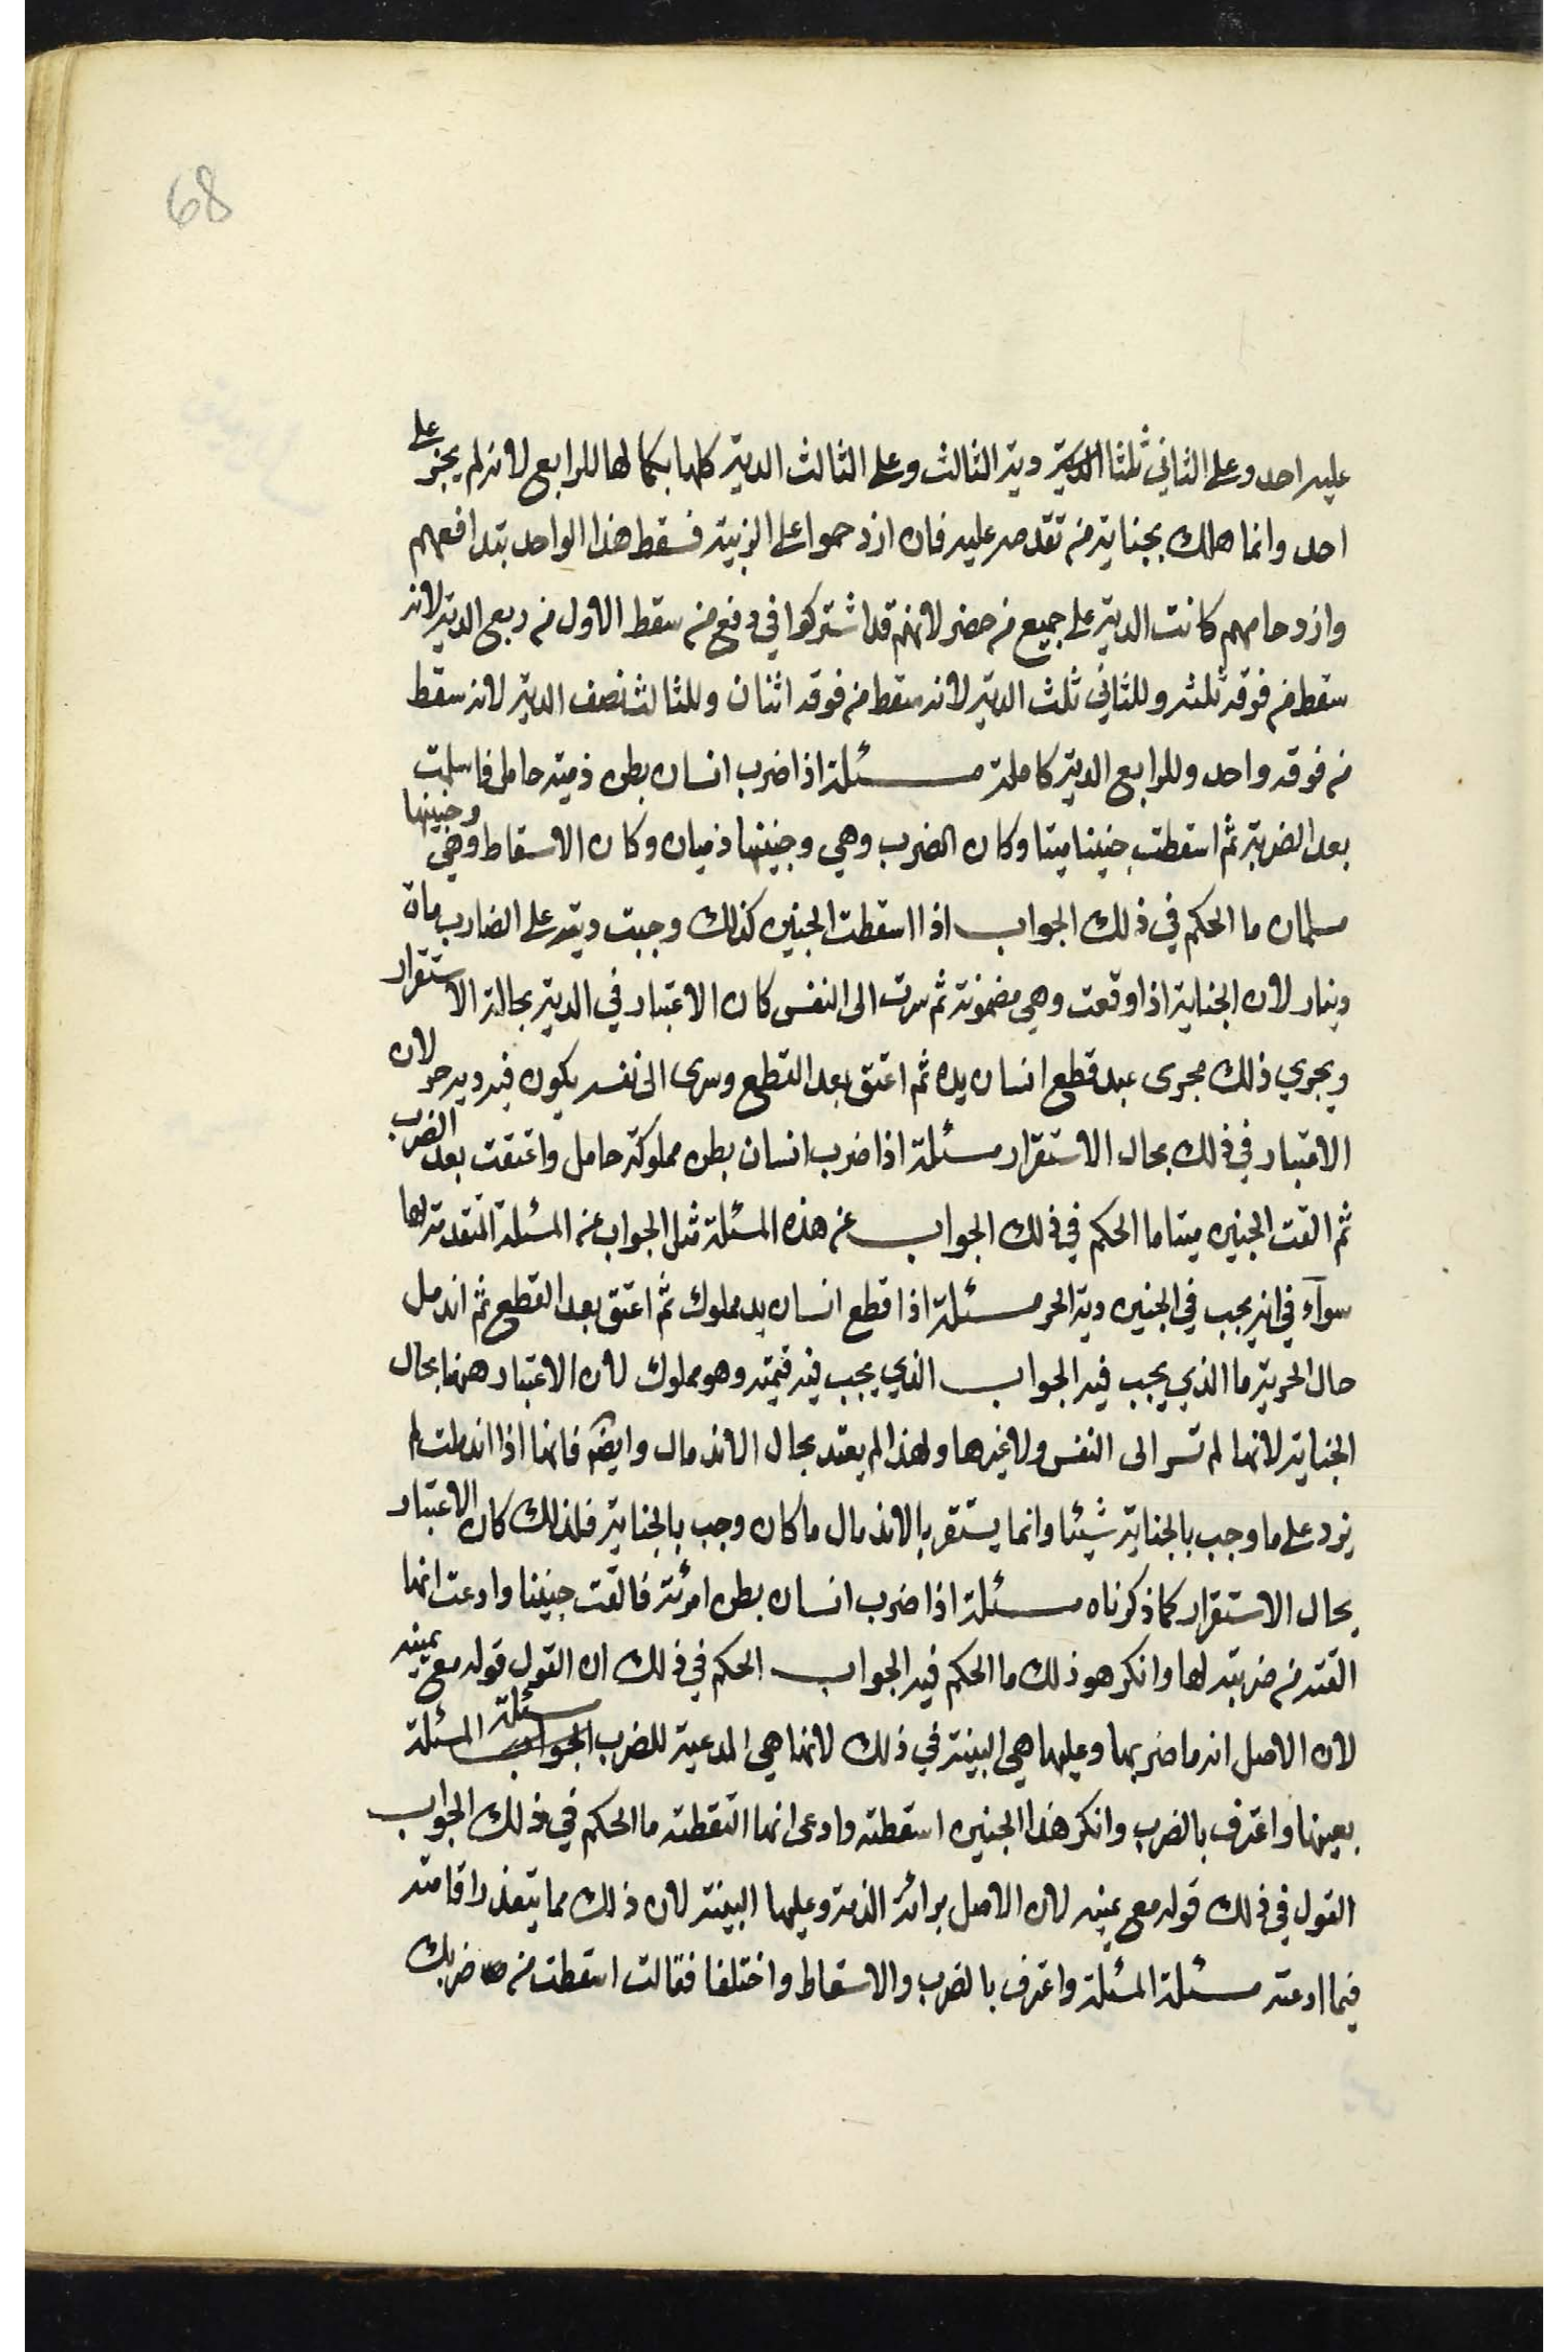 68
عليه احد وعلى الثاني ثلثا الدية دية الثالث وعلى الثالث الدية كلها بكمالها للرابع لانه لم يجز على
احد وانما هلك بجناية من تقدمه عليه فان ازدحموا على الزبية فسقط هذا الواحد بتدافعهم
وازدحامهم كانت الدية على جميع من حضر لانهم قد اشتركوا في دفع من سقط الاول من ربع الدية لانه
سقط من فوقه ثلثه وللثاني ثلث الدية لانه سقط من فوقه اثنان وللثالث نصف الدية لانه سقط
من فوقه واحد وللرابع الدية كاملة مسئلة اذا ضرب انسان بطن ذمية حامل فاسلمت
بعد الضربة ثم اسقطت جنينا ميتا وكان الضرب وهي وجنينها ذميان وكان الاسقاط وهي وجنينها
مسلمان ما الحكم في ذلك الجواب اذا اسقطت الجنين كذلك وجبت ديته على الضارب ماة
دينار لان الجناية اذا وقعت وهي مضمونة ثم سرت الى النفس كان الاعتبار في الدية بحالة الاستقرار
ويجري ذلك مجرى عبد قطع انسان يده ثم اعتق بعد القطع وسرى الى نفسه يكون فيه دية حر لان
الاعتبار في ذلك بحال الاستقرار مسئلة اذا ضرب انسان بطن مملوكة حامل واعتقت بعد الضرب
ثم القت الجنين ميتا ما الحكم في ذلك الجواب عن هذه المسئلة مثل الجواب عن المسئلة المتقدمة لها
سوآء في انه يجب في الجنين دية الحر مسئلة اذا قطع انسان يد مملوك ثم اعتق بعد القطع ثم اندمل
حال الحرية ما الذي يجب فيه الجواب الذي يجب فيه قيمته وهو مملوك لان الاعتبار ههنا بحال
الجناية لانها لم تسر الى النفس ولا غيرها ولهذا لم يعتد بحال الاندمال وايضا فانها اذا اندملت لم
يزد على ما وجب بالجناية شيئا وانما يستقر بالاندمال ما كان وجب بالجناية فلذلك كان الاعتبار
بحال الاستقرار كما ذكرناه مسئلة اذا ضرب انسان بطن امرئة فالقت جنينا وادعت انها
القته من ضربته لها وانكر هو ذلك ما الحكم فيه الجواب الحكم في ذلك ان القول قوله مع يمينه
لان الاصل انه ما ضربها وعليها هي البينة في ذلك لانها هي المدعية للضرب الجواب مسئلة المسئلة
بعينها واعترف بالضرب وانكر هذا الجنين اسقطته وادعى انها التقطته ما الحكم في ذلك الجواب
القول في ذلك قوله مع يمينه لان الاصل برائة الذمة وعليها البينة لان ذلك مما يتعذر اقامته
فيما ادعته مسئلة المسئلة واعترف بالضرب والاسقاط واختلفا فقالت اسقطت من ضربك